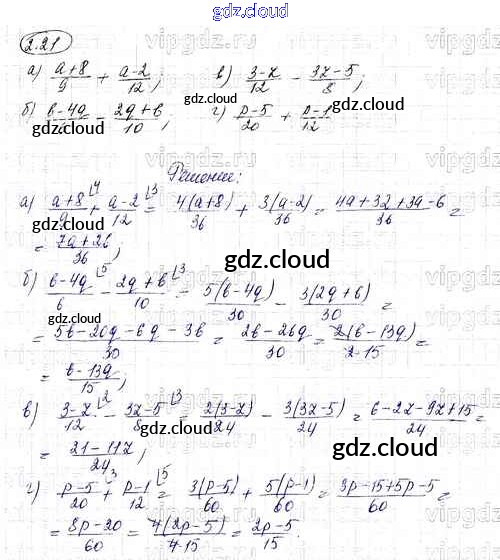 gdz.cloud
2.21
а) (a+8)/9 + (a-2)/12; в) (3-z)/12 - (3z-5)/8;
б) (b-4q)/6 - (2q+b)/10; г) (p-5)/20 + (p-1)/12
gdz.cloud gdz.cloud
Решение:
а) (a+8)/9 ⌊4 + (a-2)/12 ⌊3 = 4(a+8)/36 + 3(a-2)/36 = (4a+32+3a-6)/36 =
gdz.cloud
= (7a+26)/36;
gdz.cloud
б) (b-4q)/6 ⌊5 - (2q+b)/10 ⌊3 = 5(b-4q)/30 - 3(2q+b)/30 =
= (5b-20q-6q-3b)/30 = (2b-26q)/30 = 2(b-13q)/(2·15) =
= (b-13q)/15;
gdz.cloud
в) (3-z)/12 ⌊2 - (3z-5)/8 ⌊3 = 2(3-z)/24 - 3(3z-5)/24 = (6-2z-9z+15)/24 =
gdz.cloud
= (21-11z)/24;
gdz.cloud
г) (p-5)/20 ⌊3 + (p-1)/12 ⌊5 = 3(p-5)/60 + 5(p-1)/60 = (3p-15+5p-5)/60 =
= (8p-20)/60 = 4(2p-5)/(4·15) = (2p-5)/15.
gdz.cloud